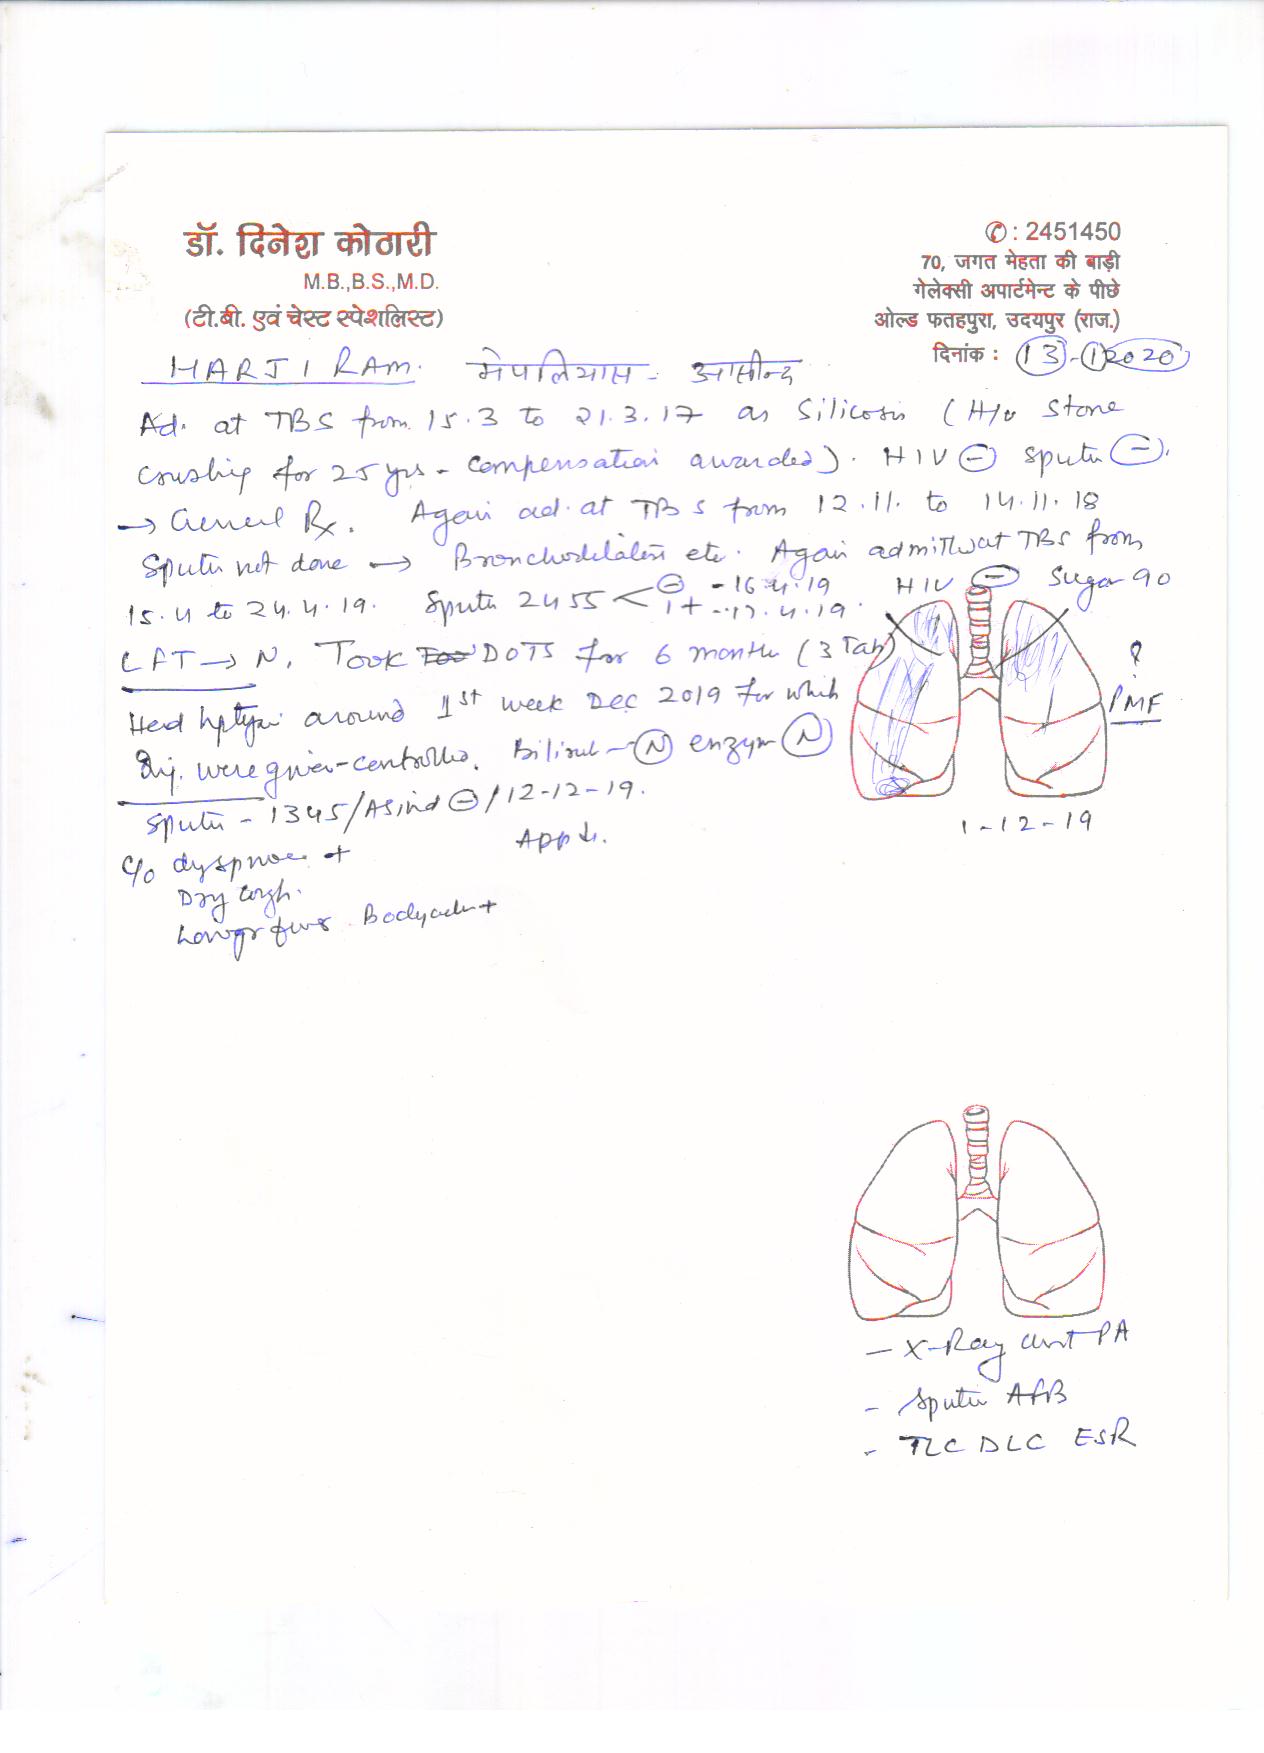 डॉ. दिनेश कोठारी
M.B.,B.S.,M.D.
(टी.बी. एवं चेस्ट स्पेशलिस्ट)
✆ : 2451450
70, जगत मेहता की बाड़ी
गेलेक्सी अपार्टमेन्ट के पीछे
ओल्ड फतहपुरा, उदयपुर (राज.)
दिनांक : 13-1-2020
HARJI RAM. आसीन्द
Ad. at TBS from 15.3 to 21.3.17 as Silicosis (H/o Stone
crushing for 25 yrs - compensation awarded). HIV ⊖ Sputum ⊖.
→ General Rx. Again ad. at TBS from 12.11. to 14.11.18
Sputum not done → Bronchodilators etc. Again admitted at TBS from
15.4 to 24.4.19. Sputum 2455 < ⊖ - 16.4.19 HIV ⊖ Sugar 90
1+ - 17.4.19.
LFT → N. Took DOTS for 6 months (3 Tab)
?
PMF
Had around 1st week Dec 2019 for which
Inj. were given - controlled. Bilirub - N enzym N
Sputum - 1345/Asind ⊖/12-12-19.
1-12-19
App ↓.
C/o dyspnoea +
Dry cough.
fever. Bodyache +
- X-Ray chest PA
- Sputum AFB
- TLC DLC ESR